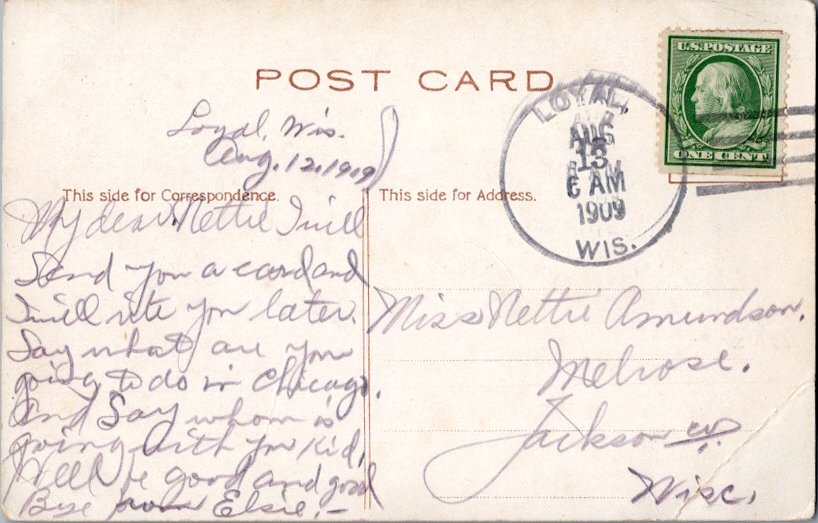 POST CARD
U.S.POSTAGE
ONE CENT
LOYAL,
AUG
13
6 AM
1909
WIS.
Loyal, Wis.
Aug. 12, 1909
This side for Correspondence.
This side for Address.
My dear Nettie I will
Send you a card and
I will rite you later.
Say what are you
going to do in Chicago.
And Say whom is
going with you Kid,
Well be good and good
Bye from Elsie,—
Miss Nettie Amundson,
Melrose.
Jackson co.
Wisc.